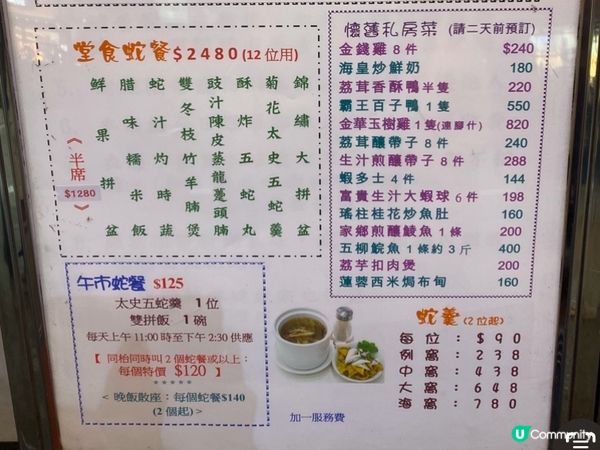 堂食蛇餐$2480(12位用)
錦繡大拼盆
菊花太史五蛇羹
酥炸五蛇丸
豉汁陳皮蒸龍躉頭腩
雙冬枝竹羊腩煲
蛇汁灼時蔬
臘味糯米飯
鮮果拼盆
《半席$1280》
懷舊私房菜 (請二天前預訂)
金錢雞 8 件 $240
海皇炒鮮奶 180
荔茸香酥鴨半隻 220
霸王百子鴨 1 隻 550
金華玉樹雞 1 隻(連腳什) 820
荔茸釀帶子 8 件 240
生汁煎釀帶子 8 件 288
蝦多士 4 件 144
富貴生汁大蝦球 6 件 198
瑤柱桂花炒魚肚 160
家鄉煎釀鯪魚 1 條 200
五柳鯇魚 1 條約 3 斤 400
荔芋扣肉煲 200
蓮蓉西米焗布甸 160
午市蛇餐 $125
太史五蛇羹 1 位
雙拼飯 1 碗
每天上午 11:00 時至下午 2:30 供應
【 同枱同時叫 2 個蛇餐或以上:
每個特價 $120 】
*****
< 晚飯散座：每個蛇餐$140
(2 個起)>
蛇羹(2位起)
每位：$90
例窩：238
中窩：438
大窩：648
海窩：780
加一服務費
U Community